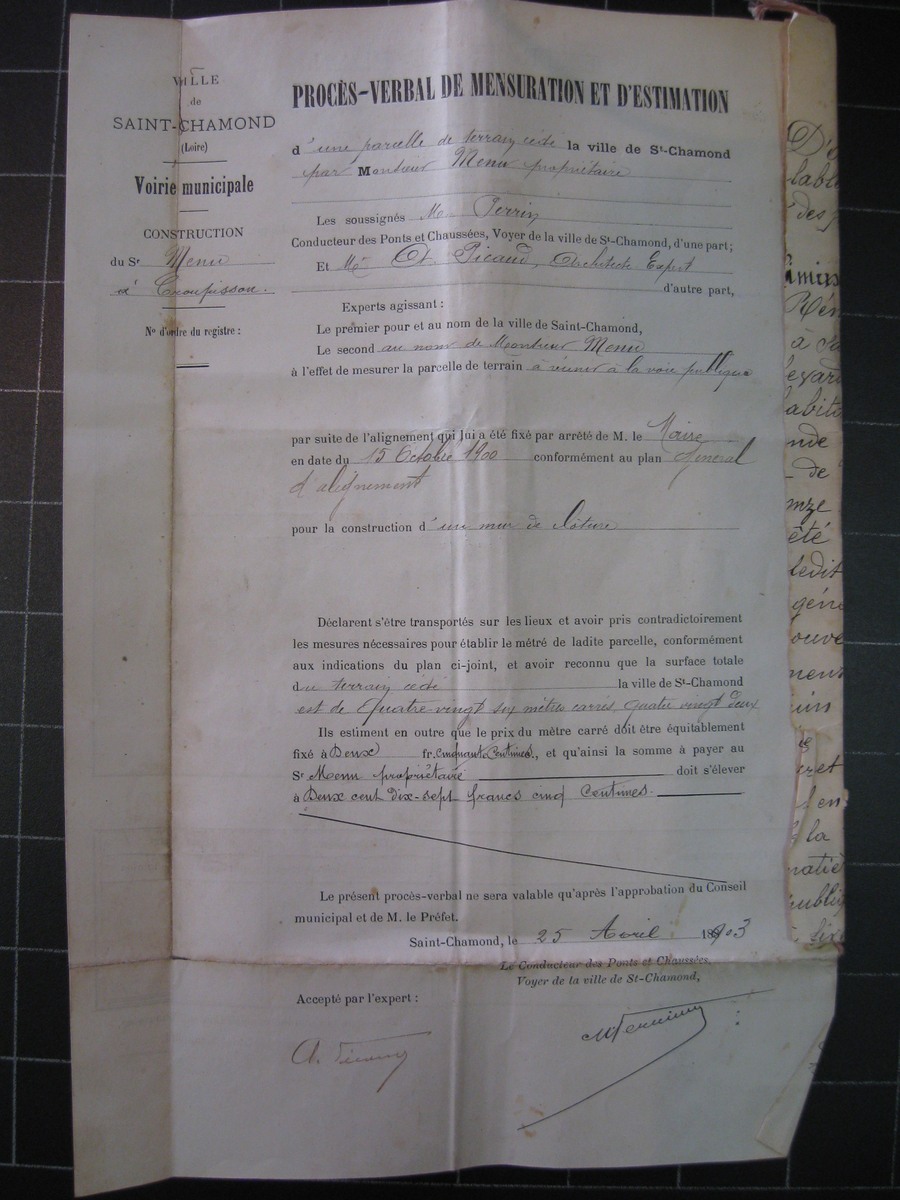 VILLE
de
SAINT-CHAMOND
(Loire)
Voirie municipale
CONSTRUCTION
du Sr Menu
à Croupisson.
No d'ordre du registre :
PROCÈS-VERBAL DE MENSURATION ET D'ESTIMATION
d'une parcelle de terrain cédé la ville de St-Chamond
par Monsieur Menu propriétaire
Les soussignés Mr Perrin
Conducteur des Ponts et Chaussées, Voyer de la ville de St-Chamond, d'une part ;
Et Mr A. Picaud, Architecte Expert
d'autre part,
Experts agissant :
Le premier pour et au nom de la ville de Saint-Chamond,
Le second au nom de Monsieur Menu
à l'effet de mesurer la parcelle de terrain à réunir à la voie publique
par suite de l'alignement qui lui a été fixé par arrêté de M. le Maire
en date du 15 Octobre 1900 conformément au plan Général
d'alignement
pour la construction d'un mur de clôture
Déclarent s'être transportés sur les lieux et avoir pris contradictoirement
les mesures nécessaires pour établir le métré de ladite parcelle, conformément
aux indications du plan ci-joint, et avoir reconnu que la surface totale
du terrain cédé la ville de St-Chamond
est de Quatre-vingt six mètres carrés, quatre vingt deux
Ils estiment en outre que le prix du mètre carré doit être équitablement
fixé à Deux fr. cinquante centimes, et qu'ainsi la somme à payer au
Sr Menu propriétaire doit s'élever
à Deux cent dix-sept francs cinq Centimes
Le présent procès-verbal ne sera valable qu'après l'approbation du Conseil
municipal et de M. le Préfet.
Saint-Chamond, le 25 Avril 1903
Le Conducteur des Ponts et Chaussées,
Voyer de la ville de St-Chamond,
Accepté par l'expert :